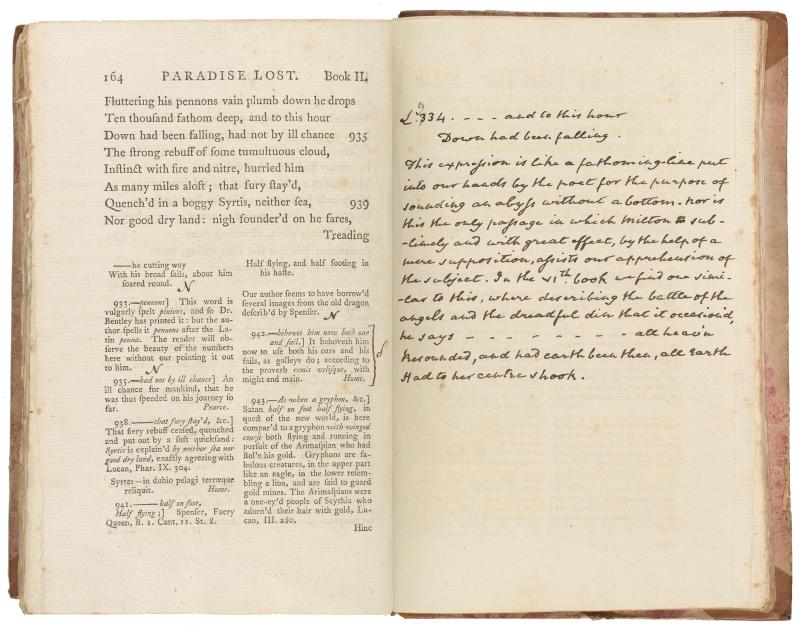 164 PARADISE LOST. Book II.
Fluttering his pennons vain plumb down he drops
Ten thouſand fathom deep, and to this hour
Down had been falling, had not by ill chance 935
The ſtrong rebuff of ſome tumultuous cloud,
Inſtinct with fire and nitre, hurried him
As many miles aloft; that fury ſtay'd,
Quench'd in a boggy Syrtis, neither ſea, 939
Nor good dry land: nigh founder'd on he fares,
Treading
——he cutting way
With his broad ſails, about him
ſoared round. N
933.—pennons] This word is
vulgarly ſpelt pinions, and ſo Dr.
Bentley has printed it: but the au-
thor ſpells it pennons after the La-
tin penna. The reader will ob-
ſerve the beauty of the numbers
here without our pointing it out
to him. N
935.—had not by ill chance] An
ill chance for mankind, that he
was thus ſpeeded on his journey ſo
far. Pearce.
938.——that fury ſtay'd, &c.]
That fiery rebuff ceaſed, quenched
and put out by a ſoft quickſand:
Syrtis is explain'd by neither ſea nor
good dry land, exactly agreeing with
Lucan, Phar. IX. 304.
Syrtes—in dubio pelagi terræque
reliquit. Hume.
941.——half on foot,
Half flying;] Spenſer, Faery
Queen, B. 1. Cant. 11. St. 8.
Half flying, and half footing in
his haſte.
Our author ſeems to have borrow'd
ſeveral images from the old dragon
deſcrib'd by Spenſer. N
942.—behoves him now both oar
and ſail.] It behoveth him
now to uſe both his oars and his
ſails, as galleys do; according to
the proverb remis veliſque, with
might and main. Hume.
943.—As when a gryphon, &c.]
Satan half on foot half flying, in
queſt of the new world, is here
compar'd to a gryphon with winged
courſe both flying and running in
purſuit of the Arimaſpian who had
ſtol'n his gold. Gryphons are fa-
bulous creatures, in the upper part
like an eagle, in the lower reſem-
bling a lion, and are ſaid to guard
gold mines. The Arimaſpians were
a one-ey'd people of Scythia who
adorn'd their hair with gold, Lu-
can, III. 280.
Hinc
L. 934. - - - and to this hour
Down had been falling.
This expression is like a fathoming-line put
into our hands by the poet for the purpose of
sounding an abyss without a bottom. nor is
this the only passage in which Milton sub-
-limely and with great effect, by the help of a
mere supposition, assists our apprehension of
the subject. In the VIth. book we find one simi-
-lar to this, where describing the battle of the
angels and the dreadful din that it occasion'd,
he says - - - - - - - - all heav'n
Resounded, and had earth been then, all Earth
Had to her centre shook.